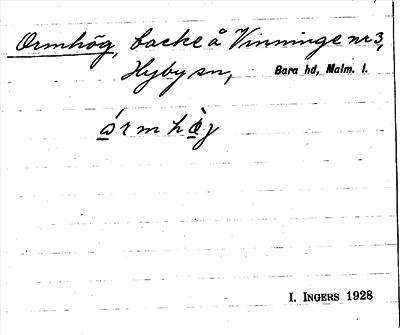 Ormhög, backe å Vinninge nr 3,
Hyby sn, Bara hd, Malm. l.
I. INGERS 1928